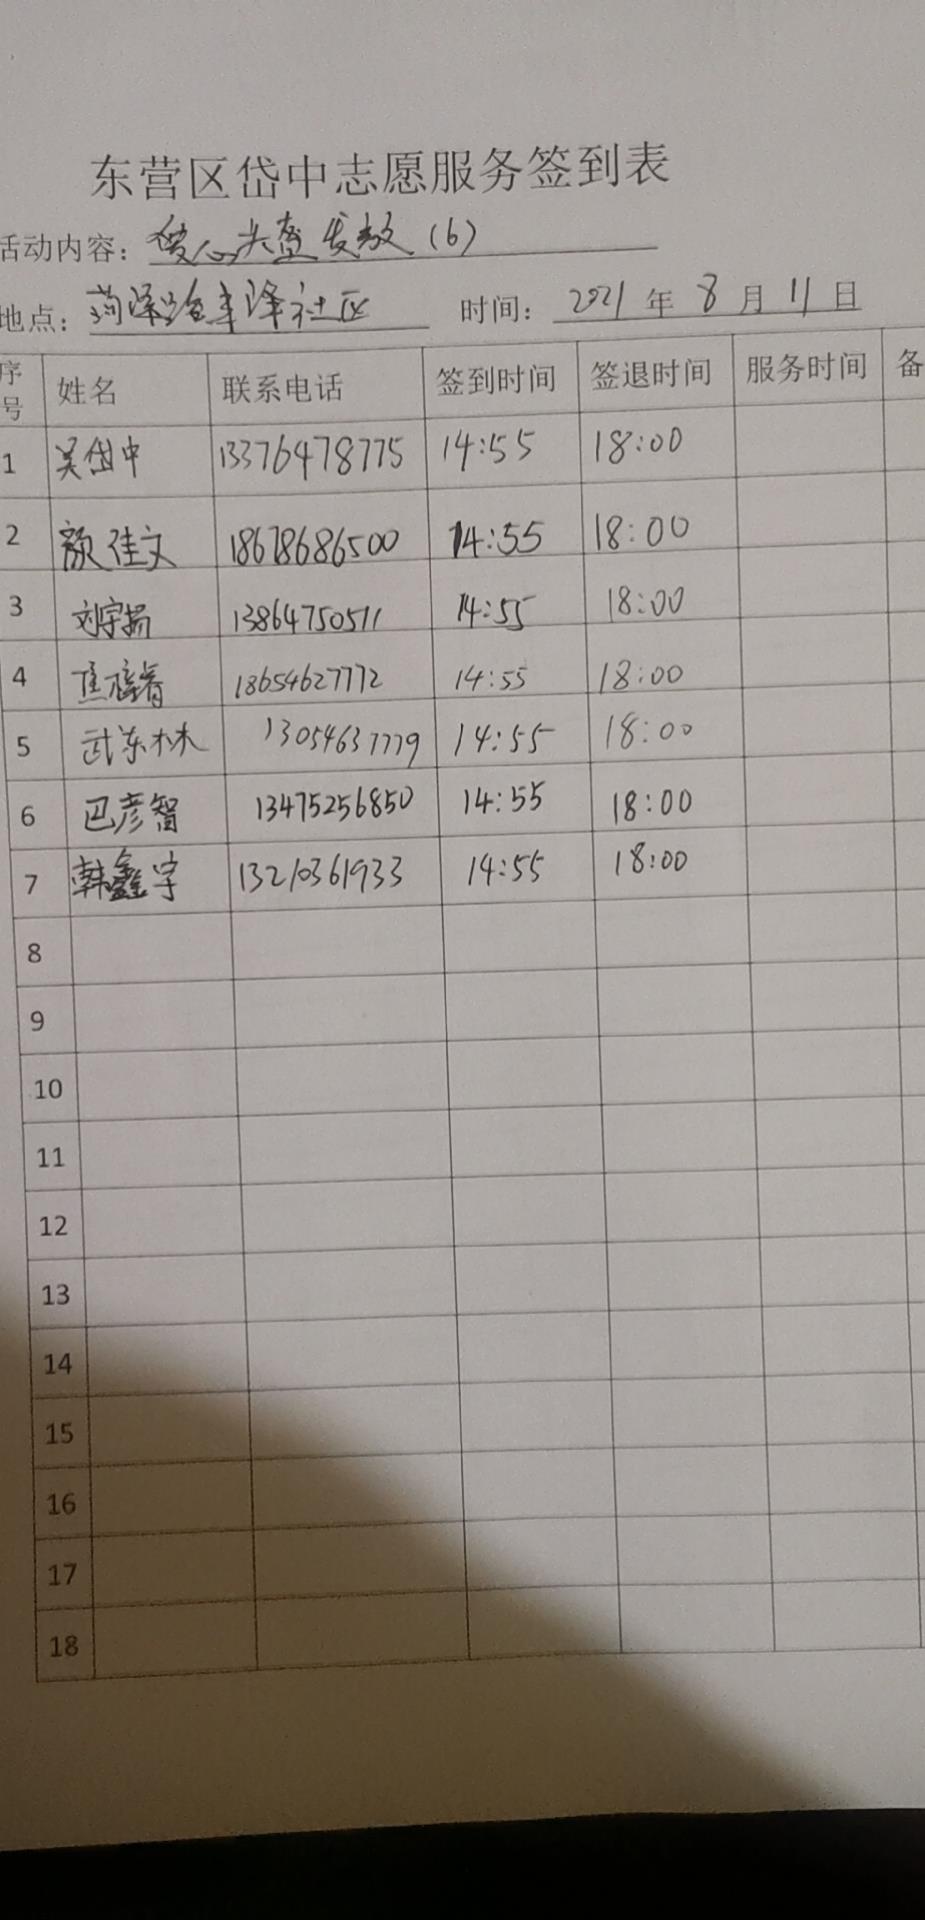 东营区岱中志愿服务签到表
活动内容：爱心头盔发放（6）
地点：菏泽路丰泽社区 时间：2021年8月11日
序号 姓名 联系电话 签到时间 签退时间 服务时间 备
1 吴岱中 13376478775 14:55 18:00
2 颜佳文 18678686500 14:55 18:00
3 刘宇扬 13864750511 14:55 18:00
4 18654627772 14:55 18:00
5 武东林 13054637779 14:55 18:00
6 巴彦智 13475256850 14:55 18:00
7 韩鑫宇 13210361933 14:55 18:00
8
9
10
11
12
13
14
15
16
17
18